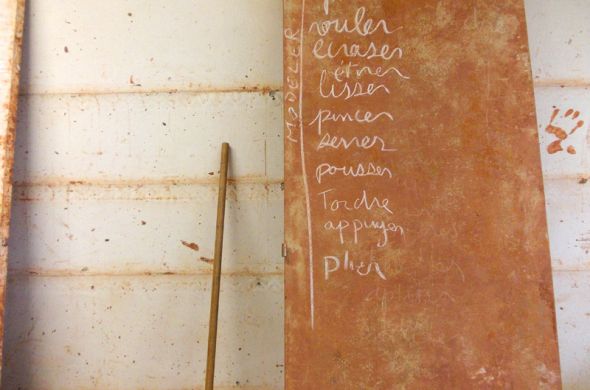 MODELER
rouler
écraser
étirer
lisser
pincer
serrer
pousser
Tordre
appuyer
plier